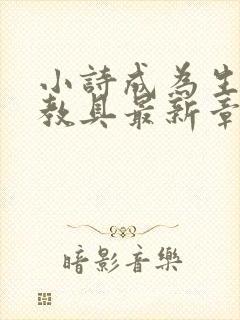 小詩成為生
教具最新章
暗影音樂